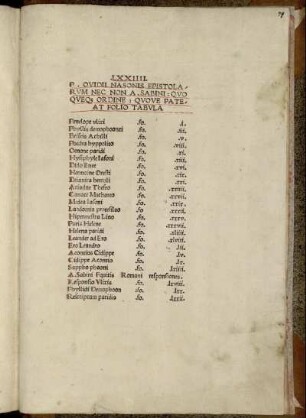 LXXIIII.
P. OVIDII NASONIS EPISTOLA-
RVM NEC NON A. SABINI: QVO
QVEQ; ORDINE; QVOVE PATE-
AT FOLIO TABVLA
Penelope vlixi fo. i.
Phyllis demophoonti fo. iii.
Briseis Achilli fo. v.
Phedra hyppolito fo. viii.
Oenone paridi fo. xi.
Hypsiphyle Iasoni fo.
Dido Enee fo. xvi.
Hermione Oresti fo.
Deianira herculi fo.
Ariadne Theseo fo.
Canace Machareo fo.
Medea Iasoni fo. xxix.
Laodomia protesilao fo.
Hipermestra Lino fo. xxxv.
Paris Helene fo. xxxvii.
Helena paridi fo.
Leander ad Ero fo.
Ero Leandro fo.
Acontius Cidippe fo. lv.
Cidippe Acontio fo.
Sappho phaoni fo. lxiii.
A. Sabini Equitis Romani responsiones.
Responsio Vlixis fo. lxviii.
Phyllidi Demophoon fo. lxx.
Responsio paridis fo. lxxii.